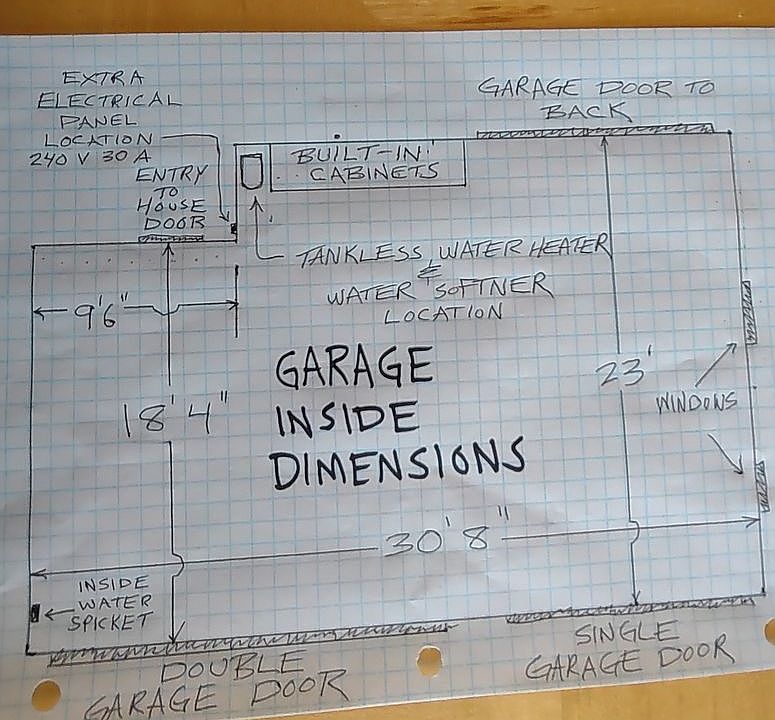 EXTRA
ELECTRICAL
PANEL
LOCATION
240 V 30 A
GARAGE DOOR TO
BACK
BUILT-IN
CABINETS
ENTRY
TO
HOUSE
DOOR
TANKLESS WATER HEATER
&
WATER SOFTNER
LOCATION
9'6"
18'4"
23'
WINDOWS
GARAGE
INSIDE
DIMENSIONS
30'8"
INSIDE
WATER
SPICKET
DOUBLE
GARAGE DOOR
SINGLE
GARAGE DOOR